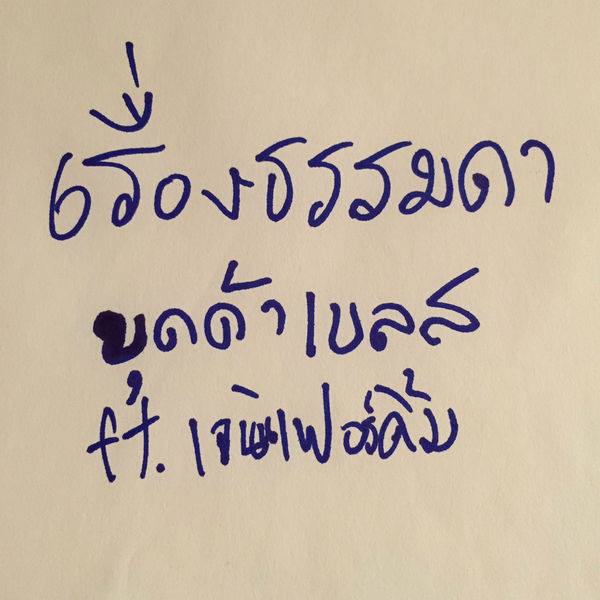 เรื่องธรรมดา
บุดด้าเบลส
ft. เจนนิเฟอร์คิ้ม